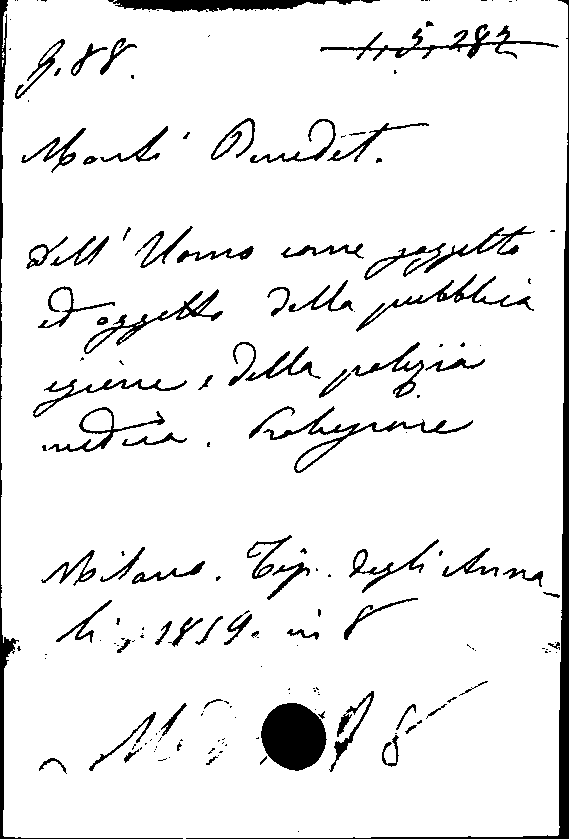 G. 88.
1, 5, 282
Monti Benedet.
Dell' Uomo come soggetto
ed oggetto della pubblica
igiene e della polizia
medica. Prolusione
Milano. Tip. degli Anna-
li, 1859. in 8
Med. 8